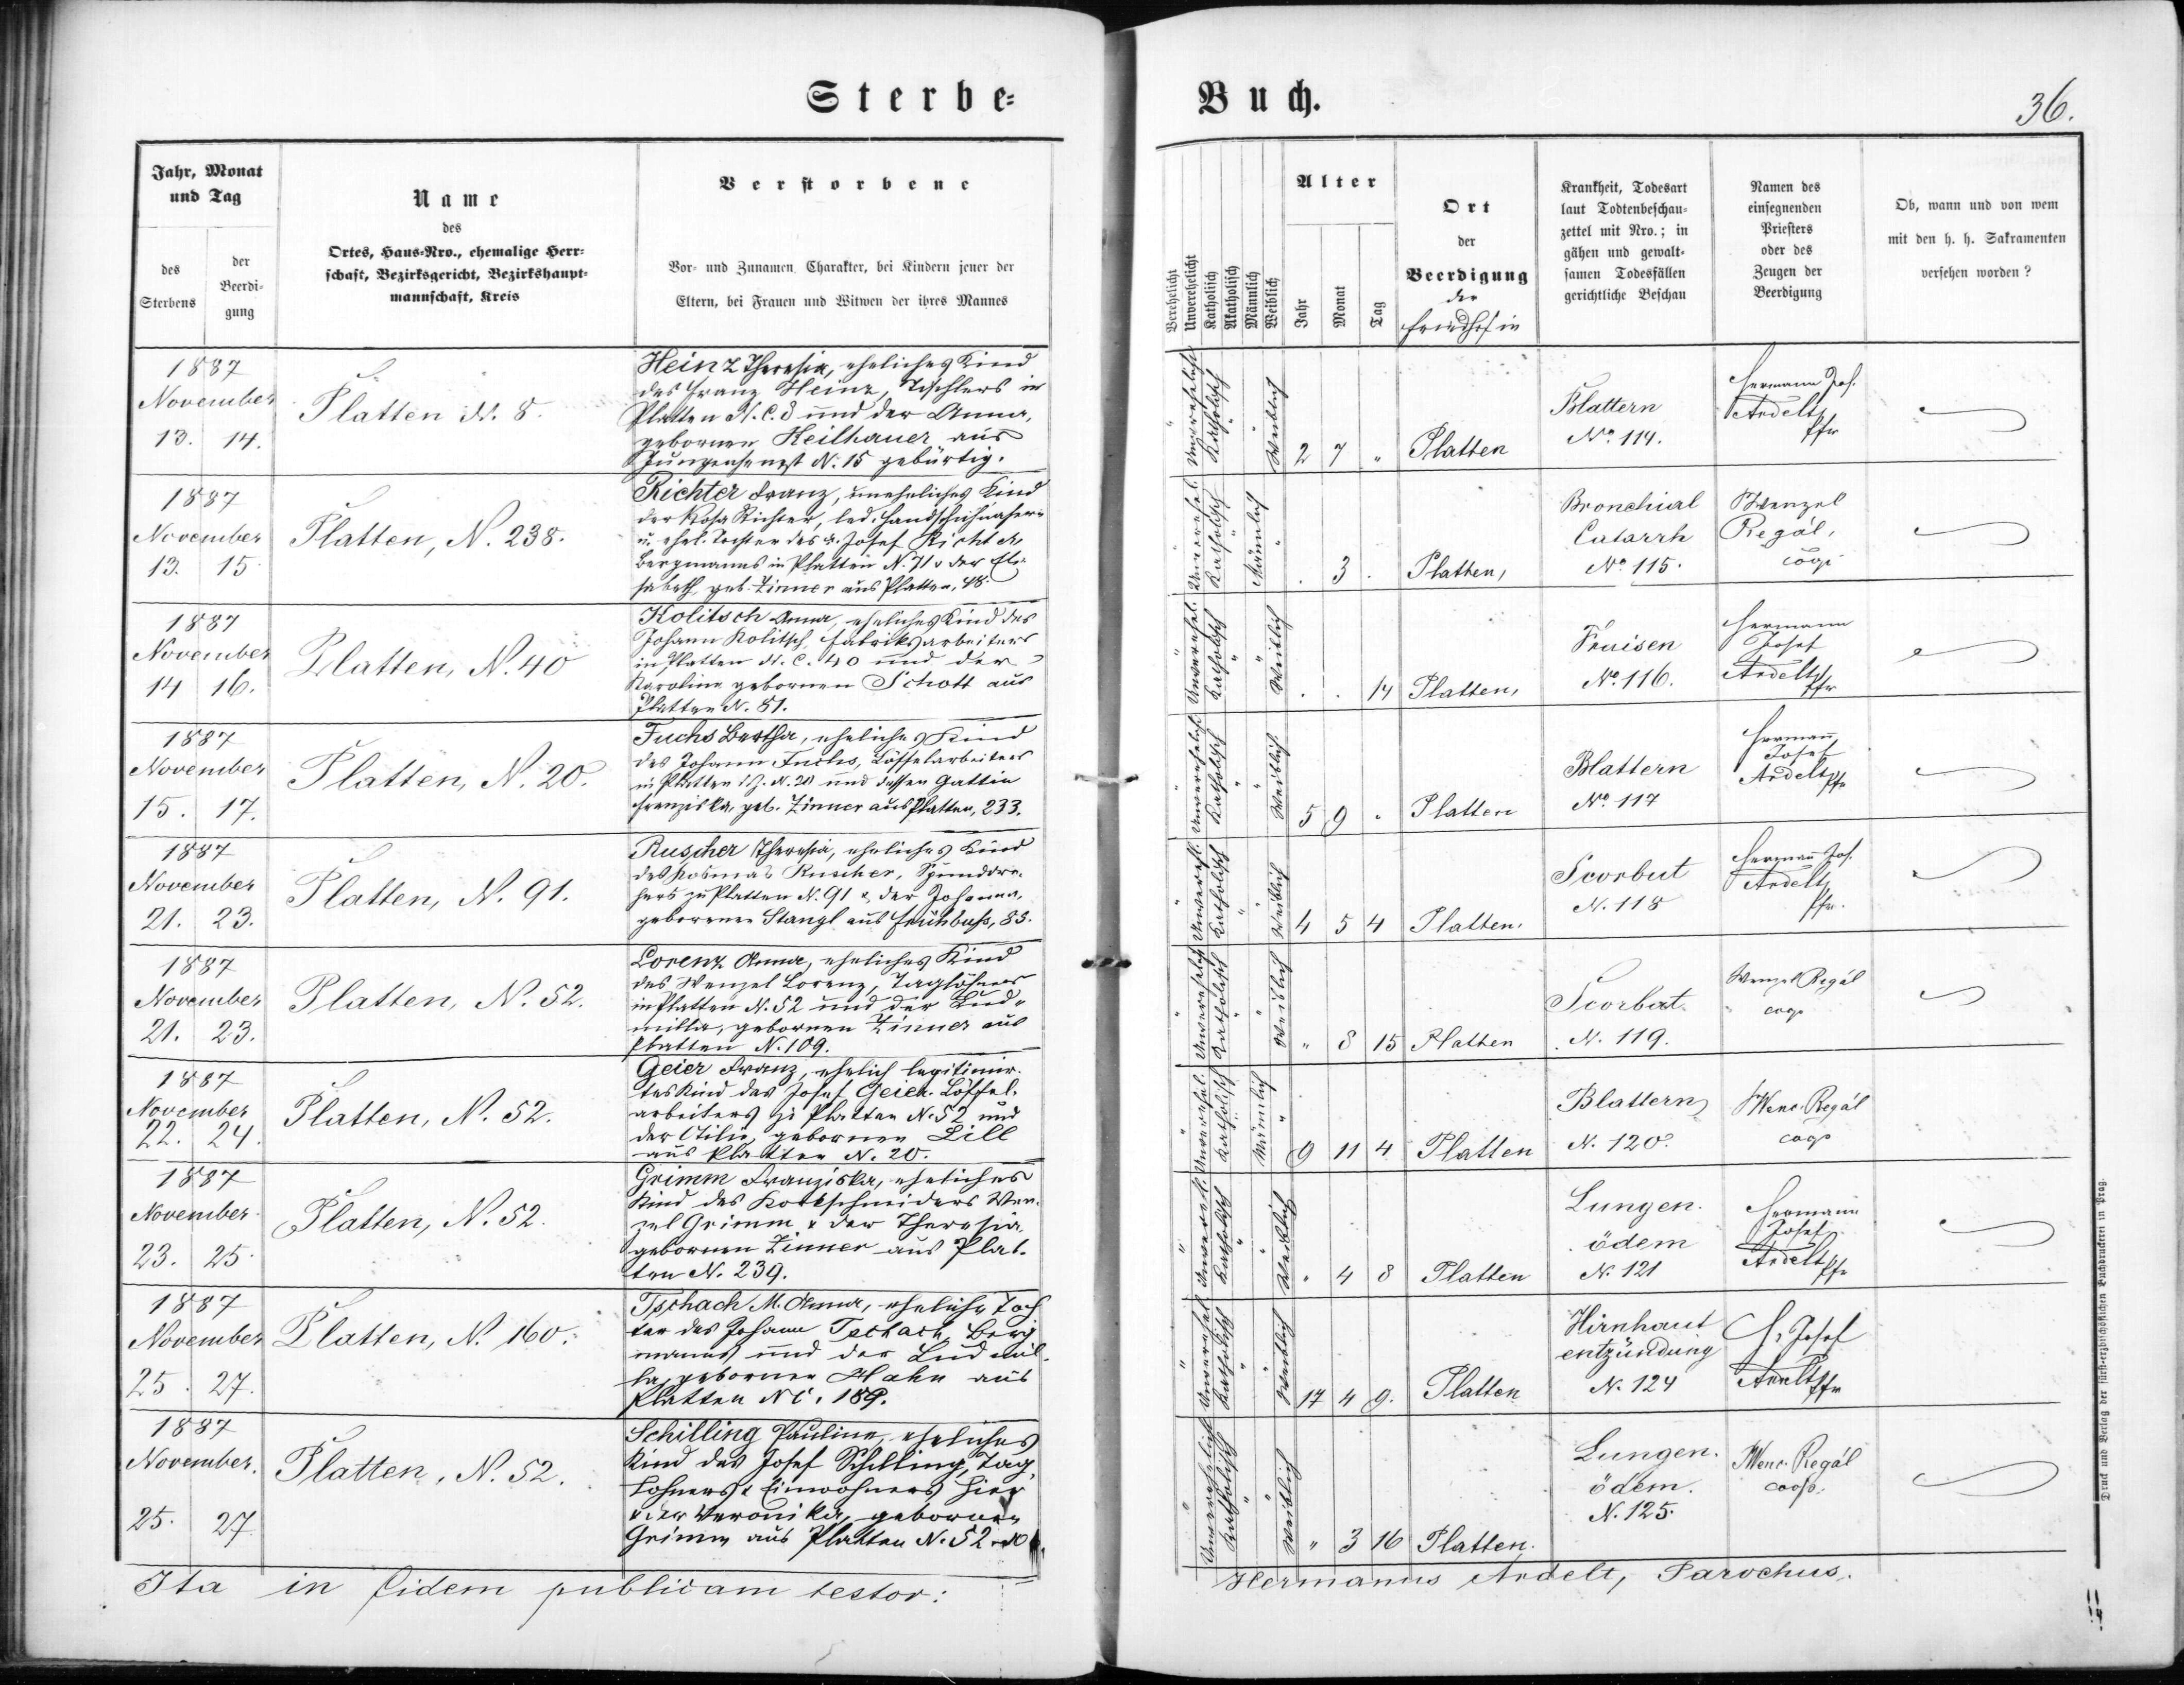 Sterbe=
Jahr, Monat
und Tag
des
Sterbens
der
Beerdi-
gung
Name
des
Ortes, Haus-Nro., ehemalige Herr-
schaft, Bezirksgericht, Bezirkshaupt-
mannschaft, Kreis
Verstorbene
Vor- und Zunamen, Charakter, bei Kindern jener der
Eltern, bei Frauen und Witwen der ihres Mannes
1887
November
13. 14.
Platten N. 8.
Heinz Theresia, eheliches Kind
des Franz Heinz, Tischlers in
Platten N. C. 8 und der Anna,
gebornen Keilhauer aus
N. 15 gebürtig.
1887
November
13. 15
Platten, N. 238.
Richter Franz, uneheliches Kind
der Rosa Richter, led. Handschuhnäherin
u. ehel. Tochter des Josef Richter,
Bergmanns in Platten N. 71 u der Eli-
sabeth, geb. Zinner aus Platten, 48.
1887
November
14 16.
Platten, N. 40
Kolitsch Anna, eheliches Kind des
Johann Kolitsch, Fabriksarbeiters
in Platten N. C. 40 und der
Karolina gebornen Schott aus
Platten N. 81.
1887
November
15. 17.
Platten, N. 20.
Fuchs Bertha, eheliches Kind
des Johann Fuchs, Löffelarbeiters
in Platten N. 20 und dessen Gattin
Franziska, geb. Zinner aus Platten, 233.
1887
November
21. 23.
Platten, N. 91.
Ruscher Theresia, eheliches Kind
des Kosmas Ruscher,
zu Platten N. 91 & der Johanna,
gebornen Stangl aus Frühbuß, 83.
1887
November
21. 23.
Platten, N. 52.
Lorenz Anna, eheliches Kind
des Wenzel Lorenz, Taglöhners
in Platten N. 52 und der Lud-
milla, gebornen Zinner aus
Platten N. 109.
1887
November
22. 24.
Platten, N. 52.
Geier Franz, ehelich legitimir-
tes Kind des Josef Geier, Löffel-
arbeiters zu Platten N. 52 und
der Otilie, gebornen Lill
aus Platten N. 20.
1887
November
23. 25
Platten, N. 52.
Grimm Franziska, eheliches
Kind des Korkschneiders Wen-
zel Grimm & der Theresia,
gebornen Zinner aus Plat-
ten N. 239.
1887
November
25. 27.
Platten, N. 160.
Tschach M. Anna, eheliche Toch
ter des Johann Tschach, Berg
manns und der Ludmil-
la, gebornen Hahn aus
Platten N C. 189.
1887
November.
25. 27
Platten, N. 52.
Schilling Pauline, eheliches
Kind des Josef Schilling, Tag-
löhners & Einwohners hier
u der Veronika, gebornen
Grimm aus Platten N. 52
Ita in fidem publicam testor:
Buch.
36.
Verehelicht
Unverehelicht
Katholisch
Akatholisch
Männlich
Weiblich
Alter
Jahr
Monat
Tag
Ort
der
Beerdigung
der
Friedhof in
Krankheit, Todesart
laut Todtenbeschau-
zettel mit Nro.; in
gähen und gewalt-
samen Todesfällen
gerichtliche Beschau
Namen des
einsegnenden
Priesters
oder des
Zeugen der
Beerdigung
Ob, wann und von wem
mit den h. h. Sakramenten
versehen worden?
Unverehelicht
Katholisch
Weiblich
2 7 "
Platten
Blattern
No. 114.
Hermann Jos.
Ardelt
Pfr
Unverehel.
Katholisch
Männlich
. 3 .
Platten,
Bronchial
Catarrh
No. 115.
Wenzel
Regál,
coop
Unverehel.
Katholisch
Weiblich
. . 14
Platten,
Fraisen
No. 116.
Hermann
Josef
Ardelt
Pfr
Unverehelicht
Katholisch
Weiblich
5 9 .
Platten
Blattern
No. 117
Hermann
Josef
Ardelt Pfr
Unverehl.
Katholisch
Weiblich
4 5 4
Platten.
Scorbut
N. 118
Hermann Jos.
Ardelt
Pfr.
Unverehelicht
Katholisch
Weiblich
" 8 15
Platten
Scorbut
N. 119.
Wenzel Regál
coop
Unverehel.
Katholisch
Männlich
9 11 4
Platten
Blattern
N. 120.
Wenc. Regál
coop
Unverehl.
Katholisch
Weiblich
" 4 8
Platten
Lungen-
ödem
N. 121
Hermann
Josef
Ardelt
Pfr
Unverehel.
Katholisch
Weiblich
17 4 9.
Platten
Hirnhaut
entzündung
N. 124
H. Josef
Ardelt Pfr
Unverehelicht
Katholisch
Weiblich
" 3 16
Platten.
Lungen-
ödem.
N. 125.
Wenc. Regál
coop.
Hermanus Ardelt, Parochus.
Druck und Verlag der fürst-erzbischöflichen Buchdruckerei in Prag.